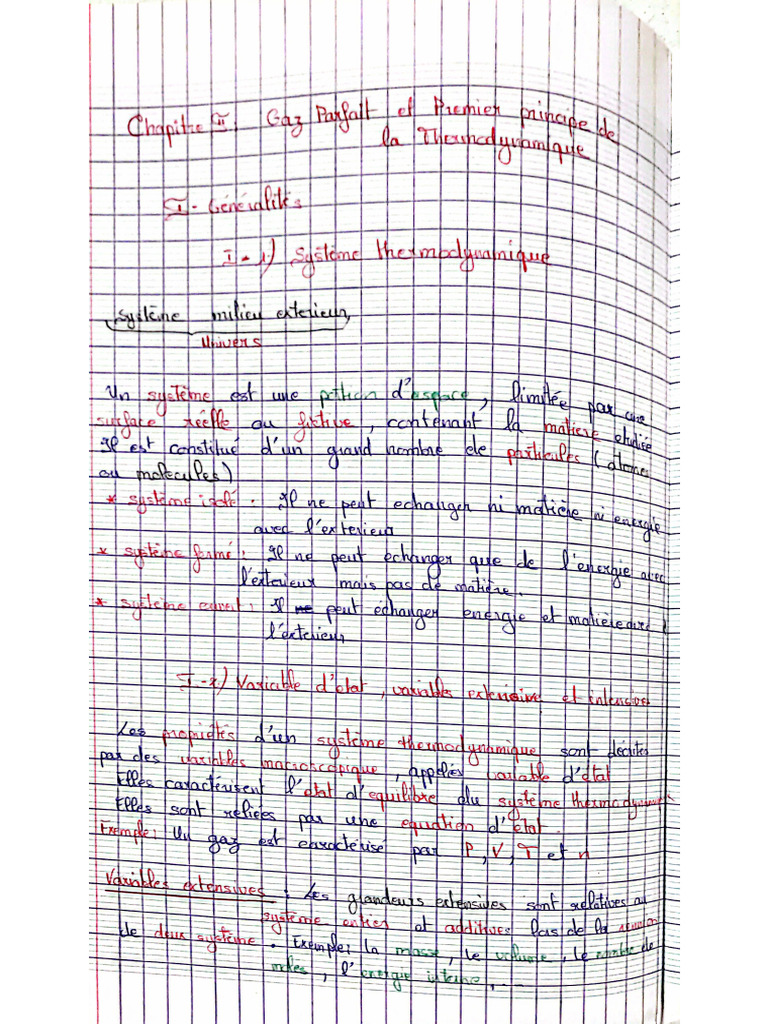 Chapitre II: Gaz Parfait et Premier principe de
la Thermodynamique
I- Généralités
I-1) Système thermodynamique
Système milieu exterieur
Univers
Un système est une portion d'espace, limitée par une
surface réelle ou fictive, contenant la matière etudiée
Il est constitué d'un grand nombre de particules (atomes
ou molecules)
* système isolé: Il ne peut echanger ni matière ni energie
avec l'exterieur
* système fermé: Il ne peut echanger que de l'energie avec
l'exterieur mais pas de matière.
* système ouvert: Il ne peut echanger energie et matière avec
l'éxterieur
I-2) Variable d'état, variables extensive et intensives
Les propiétés d'un système thermodynamique sont décrites
par des variables macroscopique, appelés variable d'état
Elles caractérisent l'état d'equilibre du système thermodynamik
Elles sont reliées par une equation d'état.
Exemple: Un gaz est caractérisé par P, V, T et n
Variables extensives: Les grandeurs extensives sont relatives au
système entier et additives lors de la reunion
de deux système. Exemple: la masse, le volume, le nombre de
moles, l'energie interne,...